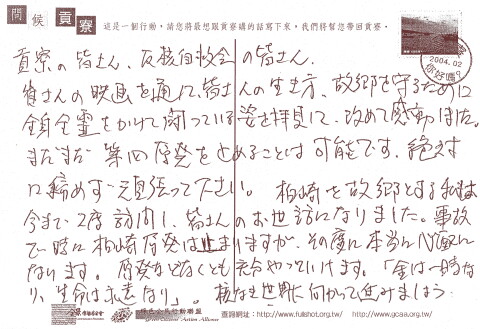 問候貢寮
這是一個行動，請您將最想跟貢寮講的話寫下來，我們將幫您帶回貢寮。
2004.02
你好嗎？
貢寮の皆さん、反核自救会の皆さん、
皆さんの映画を通して、皆さんの生き方、故郷を守るために
全霊をかけて闘っている姿を拝見して、改めて感動しました。
まだまだ 第四原発を止めることは可能です。絶対
に諦めず頑張って下さい。 柏崎を故郷とする私は
今まで2度訪問し、皆さんのお世話になりました。事故
で一時に柏崎原発は止まりますが、その度に本当に心配に
なります。原発などなくとも充分やっていけます。「金は一時な
り、生命は永遠なり」。核なき世界に向かって進みましょう
綠色公民行動聯盟
Green Citizens' Action Alliance
查詢網址：http://www.fullshot.org.tw/ http://www.gcaa.org.tw/